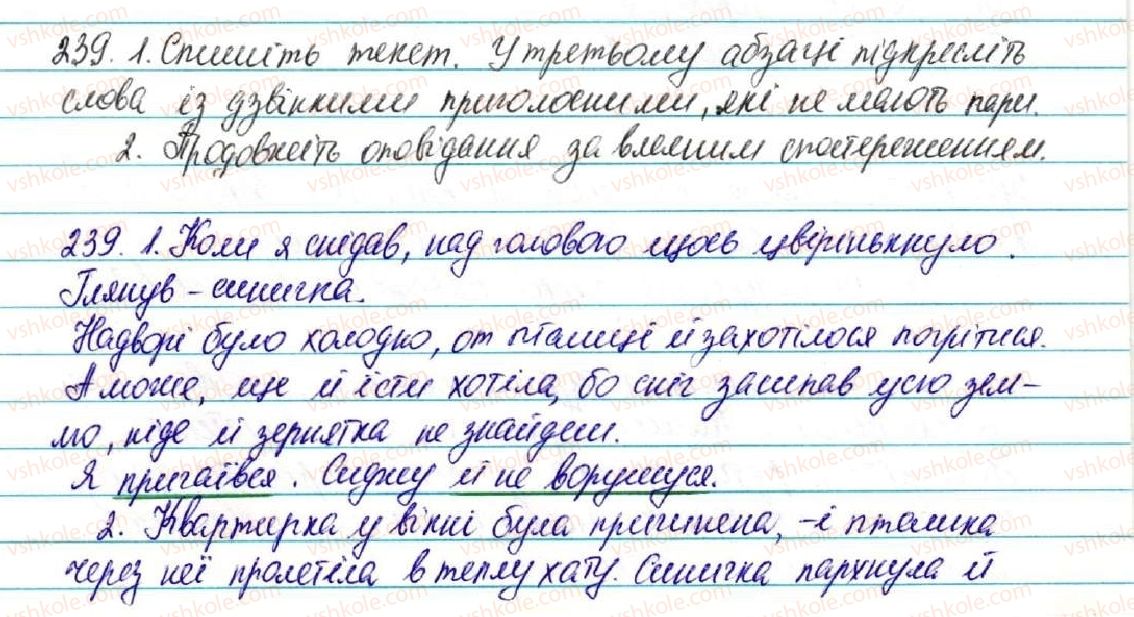 239. 1. Спишіть текст. У третьому абзаці підкресліть
слова із дзвінкими приголосними, які не мають пари.
2. Продовжіть оповідання за власним спостереженням.
239. 1. Коли я снідав, над головою щось цвірінькнуло.
Глянув - синичка.
Надворі було холодно, от пташці й захотілося погрітися.
А може, ще й їсти хотіла, бо сніг засипав усю зем-
лю, ніде й зернятка не знайдеш.
Я причаївся. Сиджу й не ворушуся.
2. Кватирка у вікні була причинена, - і пташка
через неї пролетіла в теплу хату. Синичка пархнула й